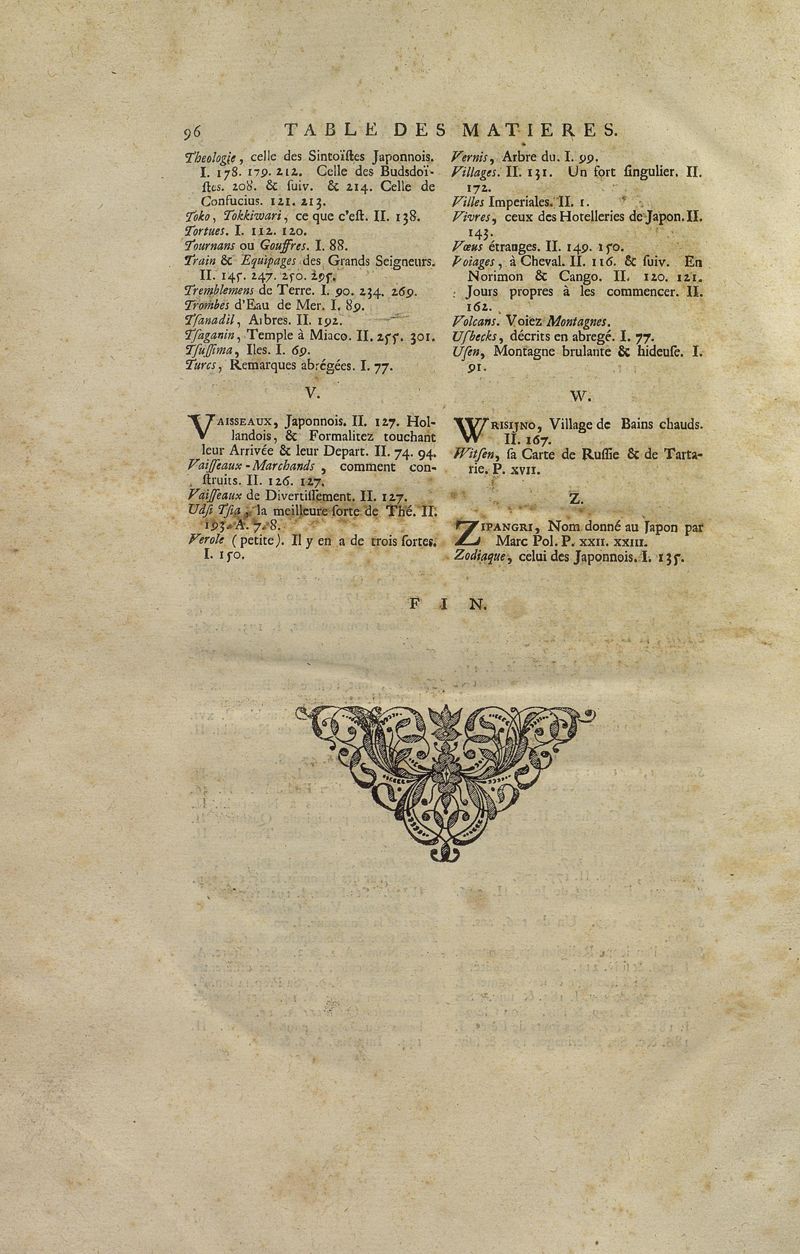 96 TABLE DES MATIERES.
Theologie, celle des Sintoïſtes Japonnois.
I. 178. 179. 212. Celle des Budsdoï-
ſtes. 208. & ſuiv. & 214. Celle de
Confucius. 121. 213.
Toko, Tokkiwari, ce que c'eſt. II. 138.
Tortues. I. 112. 120.
Tournans ou Gouffres. I. 88.
Train & Equipages des Grands Seigneurs.
II. 145. 247. 250. 295.
Tremblemens de Terre. I. 90. 234. 269.
Trombes d'Eau de Mer. I. 89.
Tſanadil, Arbres. II. 192.
Tſaganin, Temple à Miaco. II. 255. 301.
Tſuſſima, Iles. I. 69.
Turcs, Remarques abrégées. I. 77.
V.
VAISSEAUX, Japonnois. II. 127. Hol-
landois, & Formalitez touchant
leur Arrivée & leur Depart. II. 74. 94.
Vaiſſeaux-Marchands, comment con-
ſtruits. II. 126. 127.
Vaiſſeaux de Divertiſſement. II. 127.
Udſi Tſia, la meilleure ſorte de Thé. II.
193. A. 7. 8.
Verole (petite). Il y en a de trois ſortes.
I. 150.
Vernis, Arbre du. I. 99.
Villages. II. 131. Un fort ſingulier. II.
172.
Villes Imperiales. II. 1.
Vivres, ceux des Hotelleries de Japon. II.
143.
Vœus étranges. II. 149. 150.
Voiages, à Cheval. II. 116. & ſuiv. En
Norimon & Cango. II. 120. 121.
Jours propres à les commencer. II.
162.
Volcans. Voiez Montagnes.
Uſbecks, décrits en abregé. I. 77.
Uſen, Montagne brulante & hideuſe. I.
91.
W.
WRISIJNO, Village de Bains chauds.
II. 167.
Witſen, ſa Carte de Ruſſie & de Tarta-
rie. P. XVII.
Z.
ZIPANGRI, Nom donné au Japon par
Marc Pol. P. XXII. XXIII.
Zodiaque, celui des Japonnois. I. 135.
FIN.